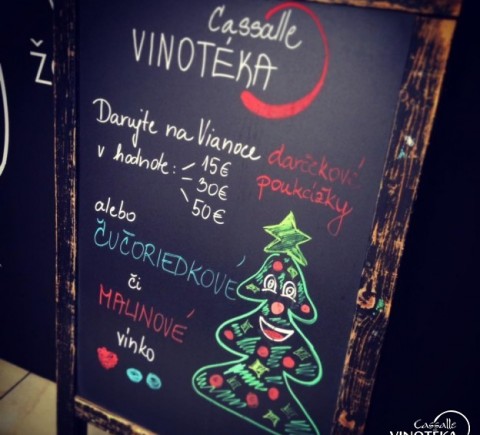 Cassalle
VINOTÉKA
Darujte na Vianoce darčekové
v hodnote: 15€ poukážky
30€
50€
alebo
ČUČORIEDKOVÉ
či
MALINOVÉ
vínko
Cassalle
VINOTÉKA